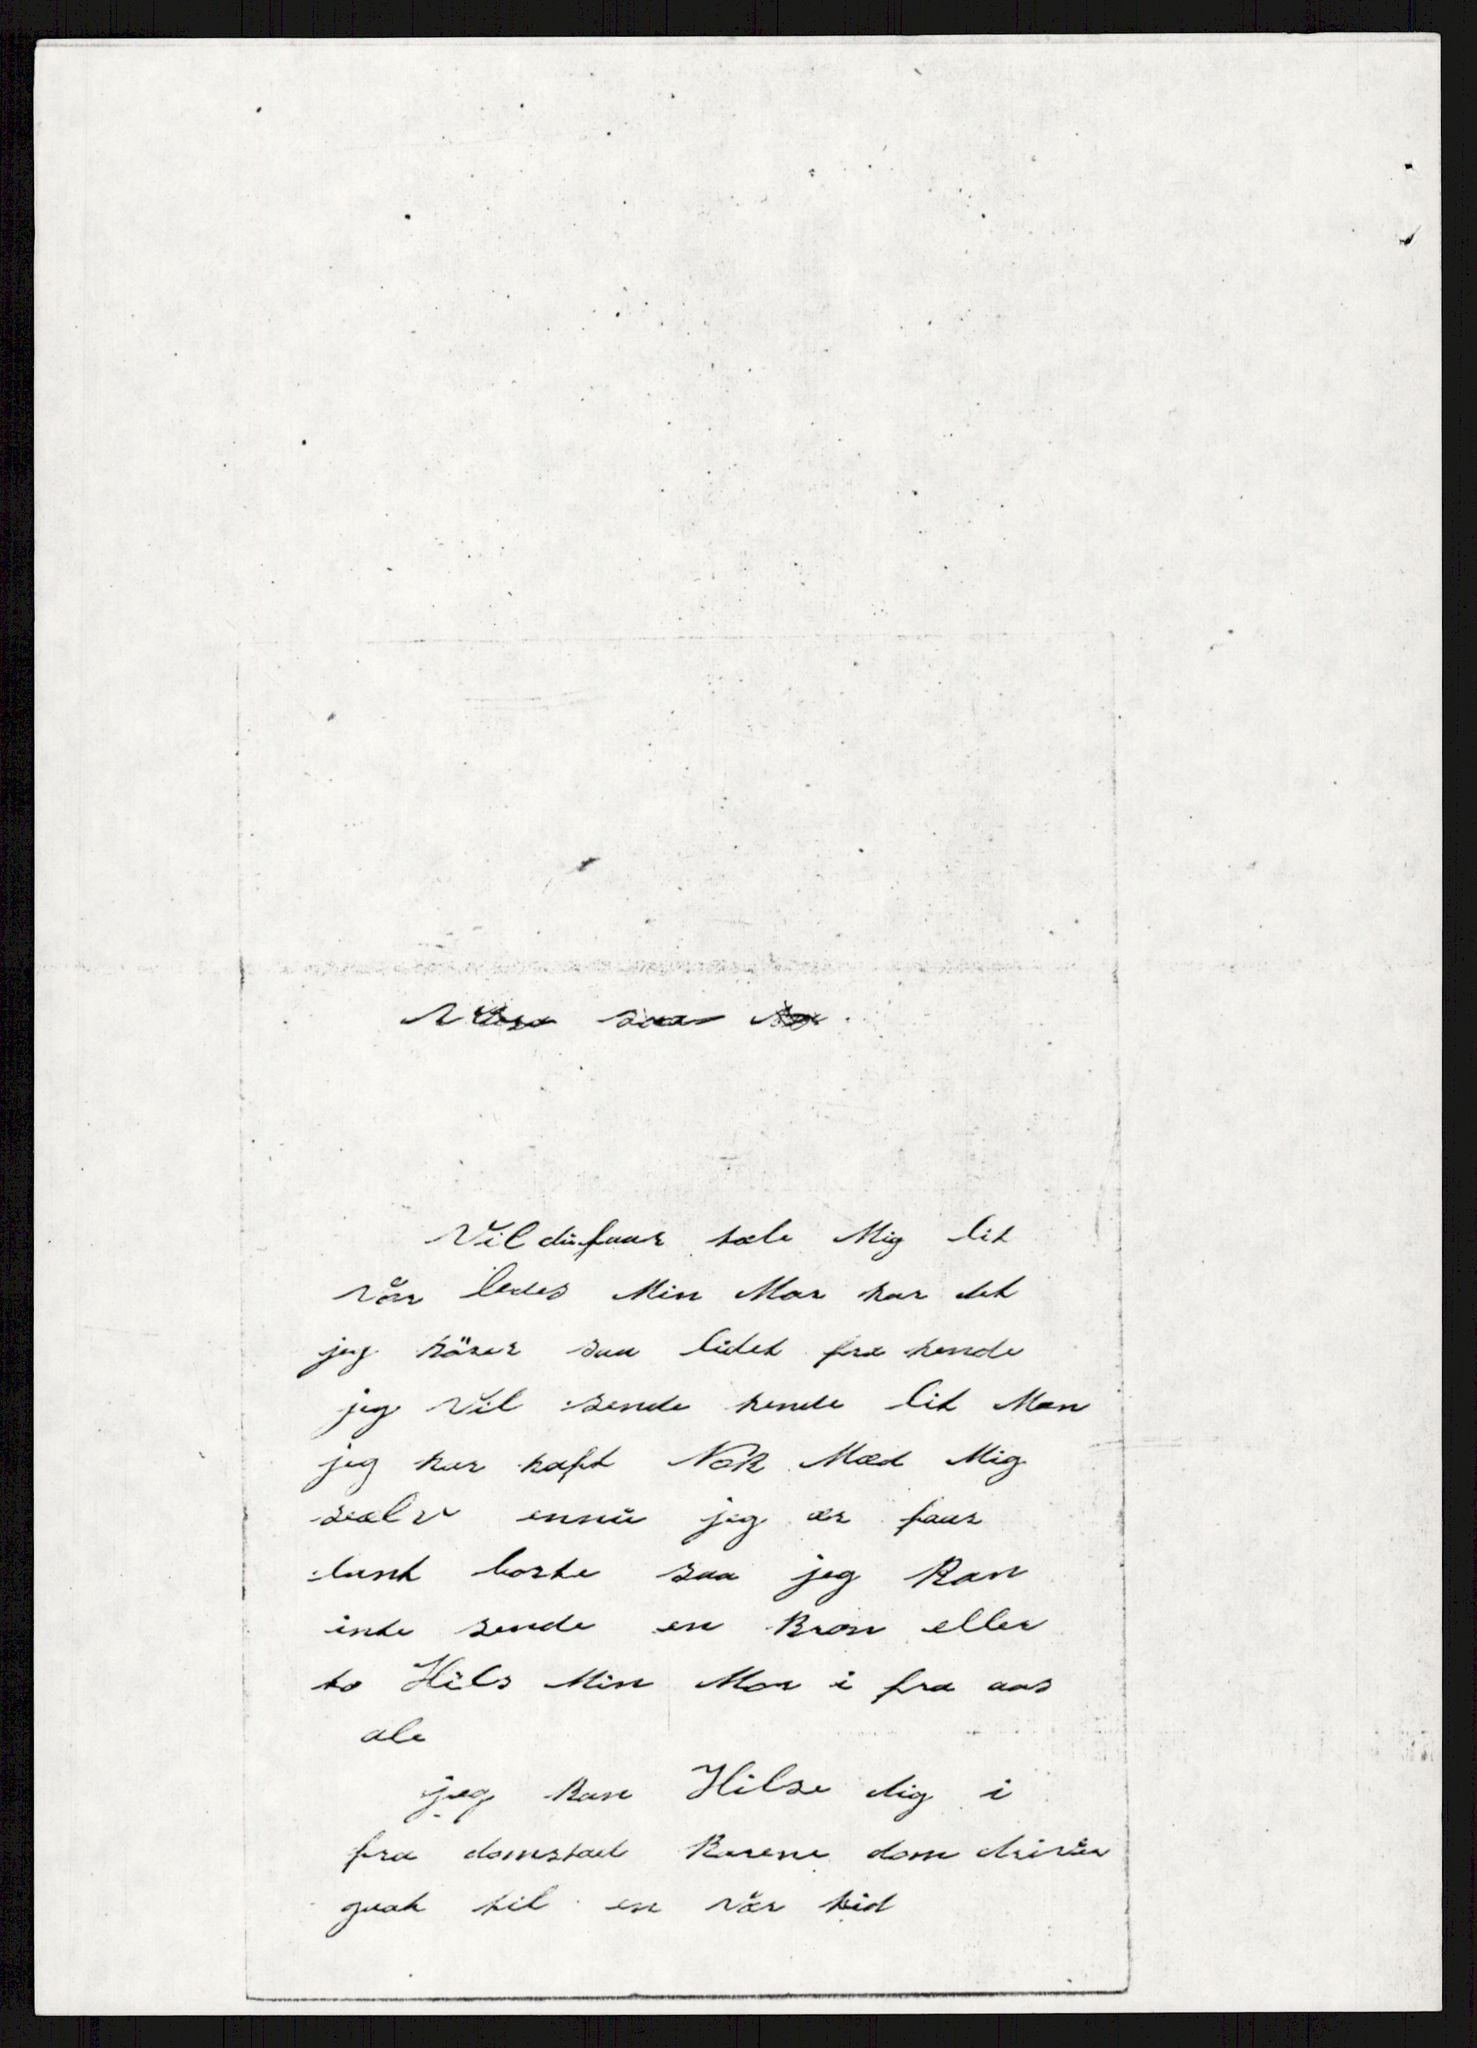 saa
Vil du faar tale Mig lit
vår ledes Min Mor har det
jeg hörer saa lidet fra hende
jeg Vil sende hende lit Men
jeg har haft Nok Med Mig
sealv ennu jeg er faar
lant borte saa jeg kan
inte sende en kron eller
to Hils Min Mor i fra aas
ale
jeg kan Hilse dig i
fra domstad Karene dom driver
goat til en vær tid